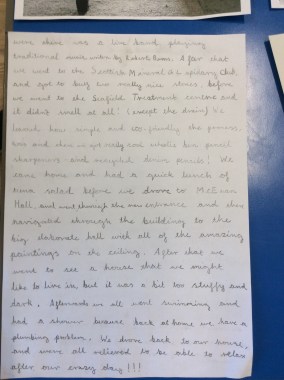 were there was a live band playing
traditional music written by Roberts Burns. After that
we went to the Scottish Mineral & Lapidary Club,
and got to buy two really nice stones before
we went to the Seafield Treatment centre and
it didn't smell at all! (except the drain) We
learnt how simple and eco-friendly the process
was and then we got nerdy and
sharpeners and recycled denim pencils! We
came home and had a quick lunch of
tuna salad before we drove to McEwan
Hall, and went through the main entrance and then
navigated through the building to the
big elaborate hall with all of the amazing
paintings on the ceiling. After that we
went to see a house that we might
like to live in, but it was a bit too stuffy and
dark. Afterwards we all went swimming and
had a shower because back at home we have a
plumbing problem. We drove back to our house,
and were all relieved to be able to relax
after our crazy day!!!